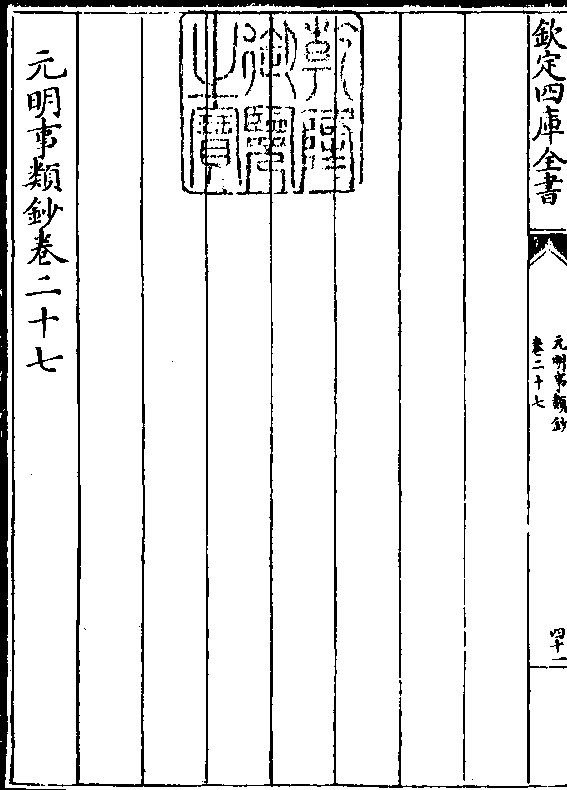 欽定四庫全書
元明事類鈔
卷二十七
四十一
乾隆
御覽
之寶
元明事類鈔卷二十七